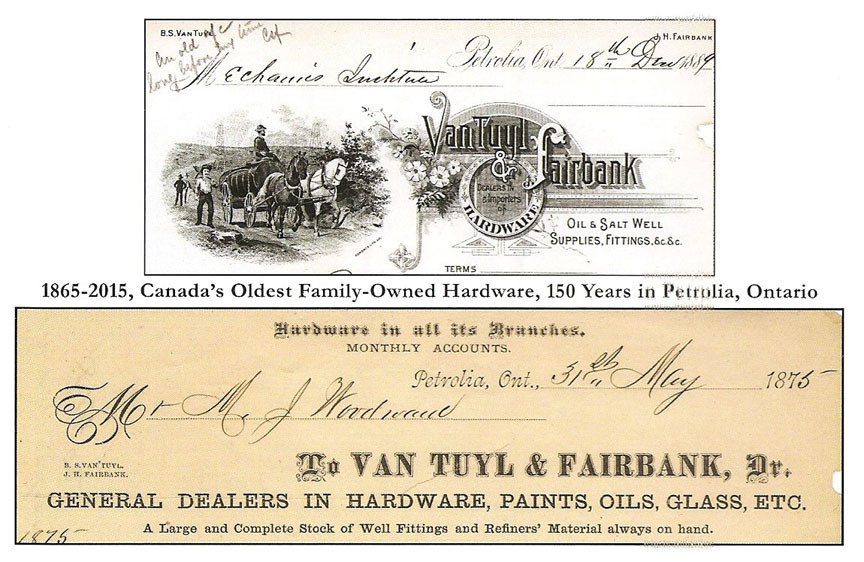 B.S. VAN TUYL
J. H. FAIRBANK
An old a/c
long before my time
CF
Petrolia, Ont. 18th Dec 1889
Mechanics Institute
Van Tuyl
& Fairbank
DEALERS IN
& Importers
of
HARDWARE
OIL & SALT WELL
SUPPLIES, FITTINGS, &c &c.
TERMS
1865-2015, Canada's Oldest Family-Owned Hardware, 150 Years in Petrolia, Ontario
Hardware in all its Branches.
MONTHLY ACCOUNTS.
Petrolia, Ont., 31st May 1875
Mr M. J Woodward
B. S. VAN TUYL.
J. H. FAIRBANK.
To VAN TUYL & FAIRBANK, Dr.
GENERAL DEALERS IN HARDWARE, PAINTS, OILS, GLASS, ETC.
A Large and Complete Stock of Well Fittings and Refiners' Material always on hand.
1875